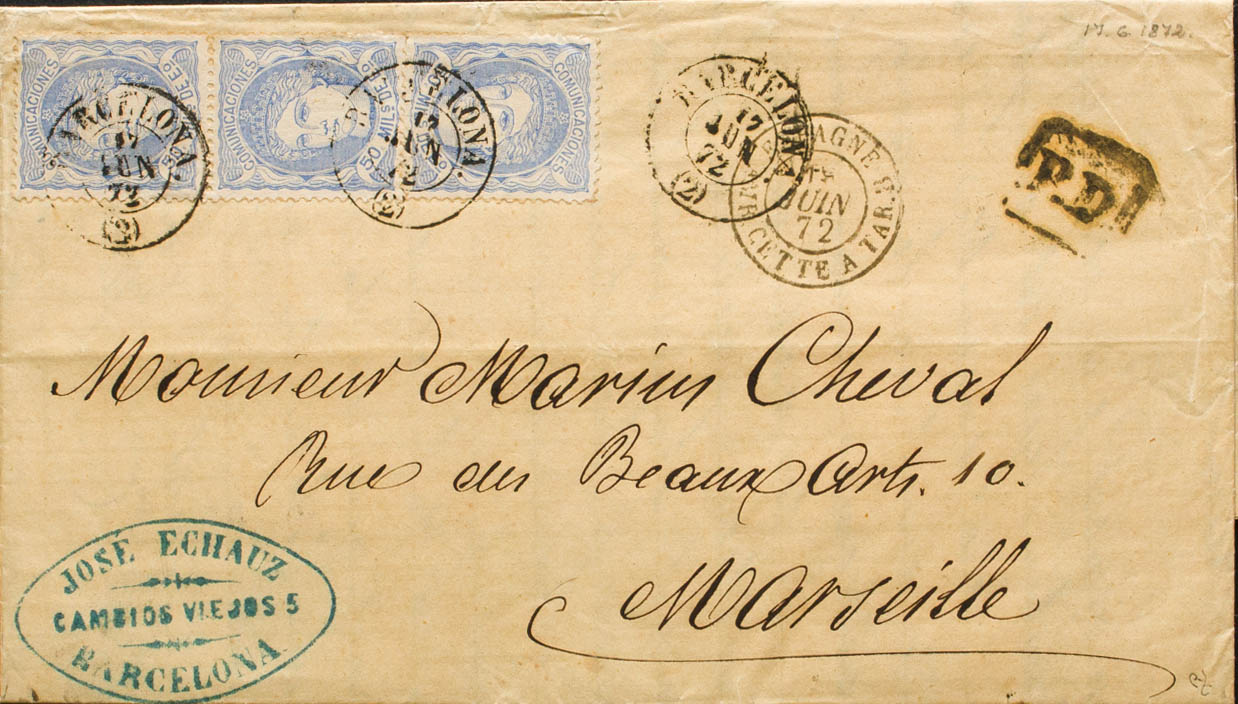 17. 6. 1872.
COMUNICACIONES
COMUNICACIONES 50 MILS DE E
COMUNICACIONES
BARCELONA.
17
JUN
72
(2)
BARCELONA.
17
JUN
72
(2)
BARCELONA
17
JUN
72
(2)
ESPAGNE
JUIN
72
CETTE A TAR.
P.D
Monsieur Marius Cheval
Rue des Beaux Arts. 10.
Marseille
JOSÉ ECHAUZ
CAMBIOS VIEJOS 5
BARCELONA